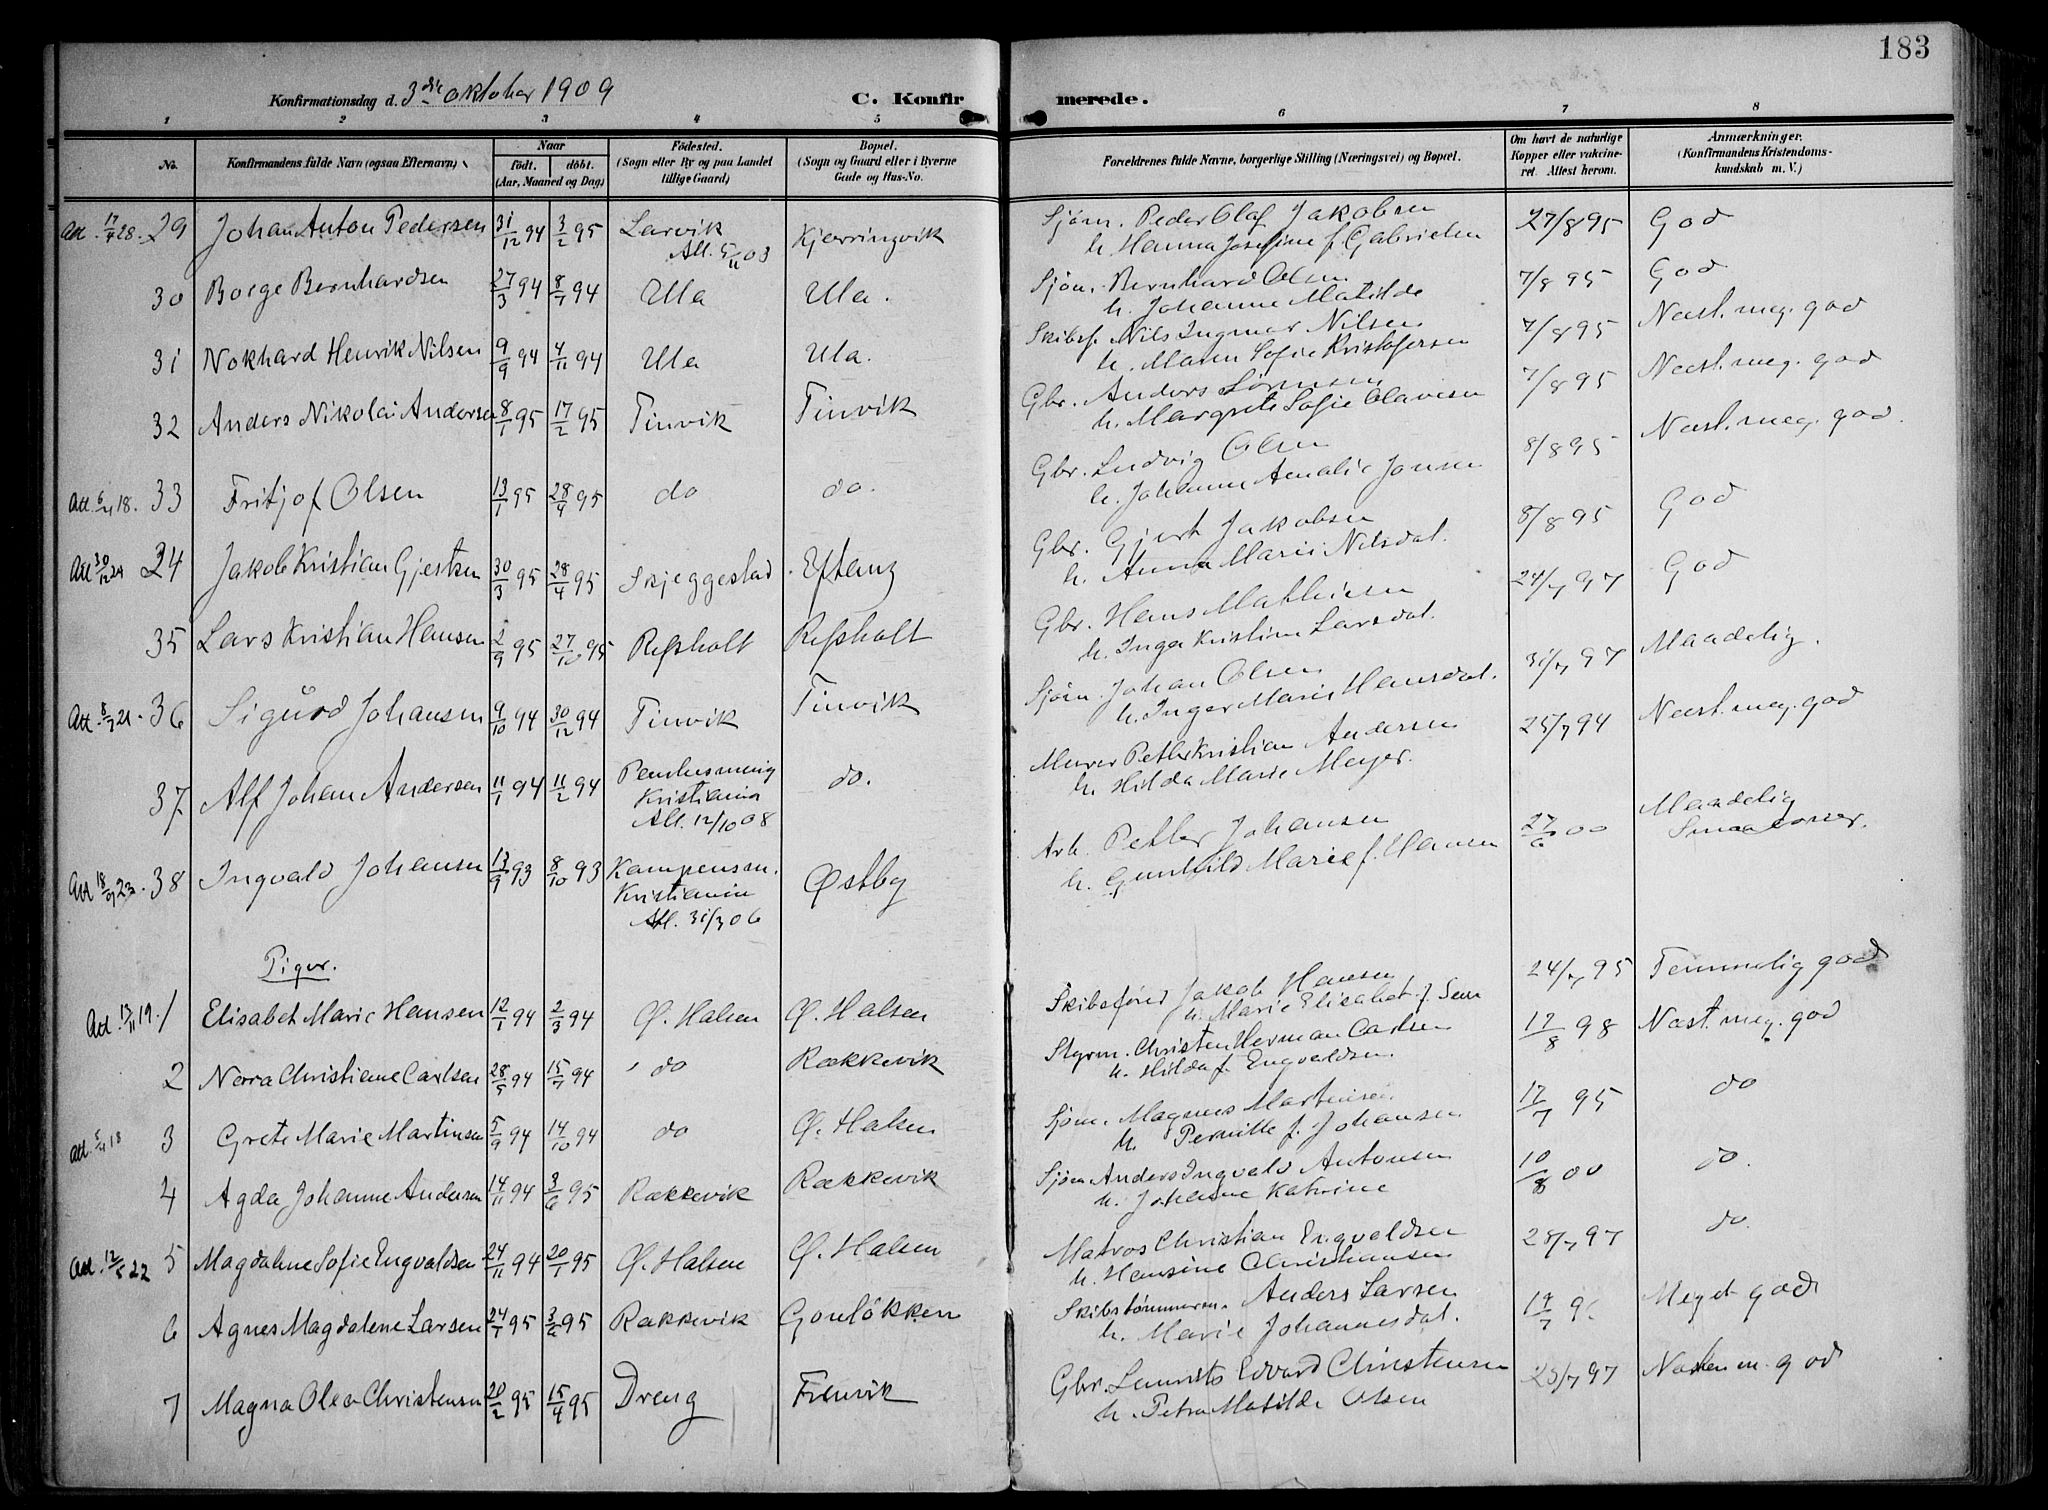 183
Konfirmationsdag d. 3die oktober 1909
C. Konfirmerede.
1 2 3 4 5 6 7 8
No.
Konfirmandens fulde Navn (ogsaa Efternavn)
Naar
födt. döbt.
(Aar, Maaned og Dag)
Födested.
(Sogn eller By og paa Landet
tillige Gaard)
Bopæl.
(Sogn og Gaard eller i Byerne
Gade og Hus-No.
Forældrenes fulde Navne, borgerlige Stilling (Næringsvei) og Bopæl.
Om havt de naturlige
Kopper eller vaccine-
ret. Attest herom.
Anmærkninger.
(Konfirmandens Kristendoms-
kundskab m. V.)
Att. 17/4 28. 29 Johan Anton Pedersen 31/12 94 3/2 95 Larvik Kjerringvik Sjøm. Peder Olaf Jakobsen 27/8 95 God
Att. 5/11 03 h. Hanna Josefine f. Gabrielsen
30 Borge Bernhardsen 27/3 94 8/7 94 Ula Ula. Sjøm. Bernhard Olsen 7/8 95 God
h. Johanne Matilde
31 Nokhard Henrik Nilsen 9/9 94 4/11 94 Ula Ula. Skibsf. Nils Ingmar Nilsen 7/8 95 Næst. meg. god
h. Maren Sofie Kristofersen
32 Anders Nikolai Andersen 8/1 95 17/2 95 Tinvik Tinvik Gbr. Anders Sørensen 7/8 95 Næst. meg. god
h. Margrete Sofie Olavesen
Att. 6/4 18. 33 Fritjof Olsen 13/1 95 28/4 95 do do. Gbr. Ludvig Olsen 8/8 95 Næst. meg. god.
h. Johanne Amalie Jonsen
Att 30/12 24 24 Jakob Kristian Gjertsen 30/3 95 28/4 95 Skjeggestad Eftang Gbr. Gjert Jakobsen 8/8 95 God
h. Anna Marie Nilsdat.
35 Lars Kristian Hansen 2/9 95 27/10 95 Refsholt Refsholt Gbr. Hans Mathisen 24/7 97 God
h. Inga Kristine Larsdat.
Att. 8/7 21. 36 Sigurd Johansen 9/10 94 30/12 94 Tinvik Tinvik Sjøm. Johan Olsen 31/7 97 Maadelig.
h. Inger Marie Hansdat.
37 Alf Johan Andersen 11/1 94 11/2 94 do. Murer Petter Kristian Andersen 25/7 94 Næst. meg. god
Kristiania h. Hilda Marie Meyer.
Att. 12/10 08
Att 18/9 23. 38 Ingvald Johansen 13/9 93 8/10 93 Kampensm. Østby Arb. Petter Johansen 27/6 00 Maadelig
Kristiania h. Gunhild Marie f. Hansen
Att. 31/3 06
Piger.
Att. 13/11 19. 1 Elisabet Marie Hansen 12/1 94 2/3 94 Ø. Halsen Ø. Halsen Skibsfører Jakob Hansen 24/7 95 Temmelig god
h. Marie Elisabet f. Sem
2 Nora Christiane Carlsen 28/5 94 15/7 94 do Rækkevik Styrm. Christen Herman Carlsen 17/8 98 Næst. meg. god
h. Hilda f. Engvaldsen.
Att. 5/4 18 3 Grete Marie Martinsen 5/9 94 14/10 94 do Ø. Halsen Sjøm. Magnus Martinsen 17/7 95 do
h. Pernille f. Johansen
4 Agda Johanne Andersen 14/11 94 3/6 95 Rækkevik Rækkevik Sjøm Anders Ingvald Antonsen 10/8 00 do.
h. Johanne Katrine
Att. 12/5 22 5 Magdalene Sofie Engvaldsen 24/11 94 20/1 95 Ø. Halsen Ø. Halsen Matros Christian Engvaldsen 28/7 97 do
h. Hansine Christiansen
6 Agnes Magdalene Larsen 24/1 95 3/6 95 Rækkevik Gonløkken Skibstømmerm. Anders Larsen 19/7 Meget god
h. Marie Johannesdat.
7 Magna Olea Christensen 20/2 95 15/4 95 Dreng Gbr. Edvard Christensen 25/7 97 Næsten m. god
h. Petra Matilde Olsen